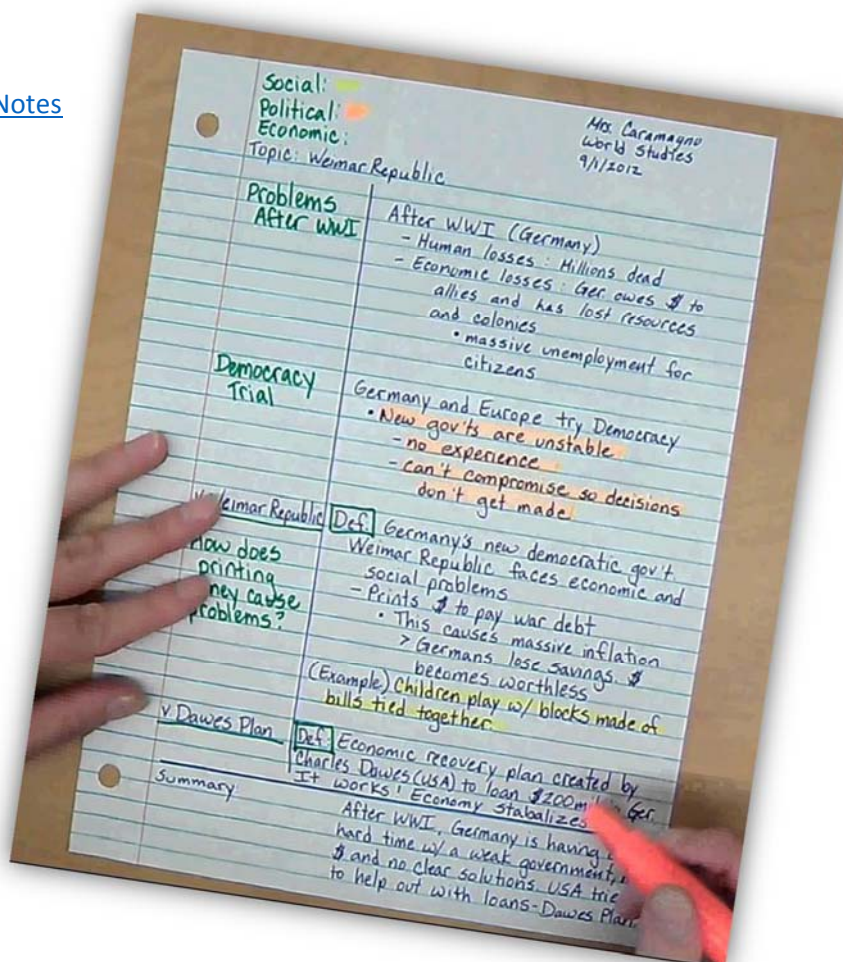 Notes
Social:
Political:
Economic:
Topic: Weimar Republic
Mrs. Caramagno
World Studies
9/1/2012
Problems
After WWI
After WWI (Germany)
- Human losses: Millions dead
- Economic losses: Ger owes $ to
allies and has lost resources
and colonies
• massive unemployment for
citizens
Democracy
Trial
Germany and Europe try Democracy
• New gov'ts are unstable
- no experience
- can't compromise so decisions
don't get made
Weimar Republic
Def: Germany's new democratic gov't.
Weimar Republic faces economic and
social problems
How does
printing
cause
problems?
- Prints $ to pay war debt
• This causes massive inflation
> Germans lose savings. $
becomes worthless
(Example) Children play w/ blocks made of
bills tied together
v. Dawes Plan
Def: Economic recovery plan created by
Charles Dawes (USA) to loan $200 Ger.
It works! Economy stabalizes
Summary:
After WWI, Germany is having
hard time w/ a weak government,
$ and no clear solutions. USA
to help out with loans-Dawes Plan.